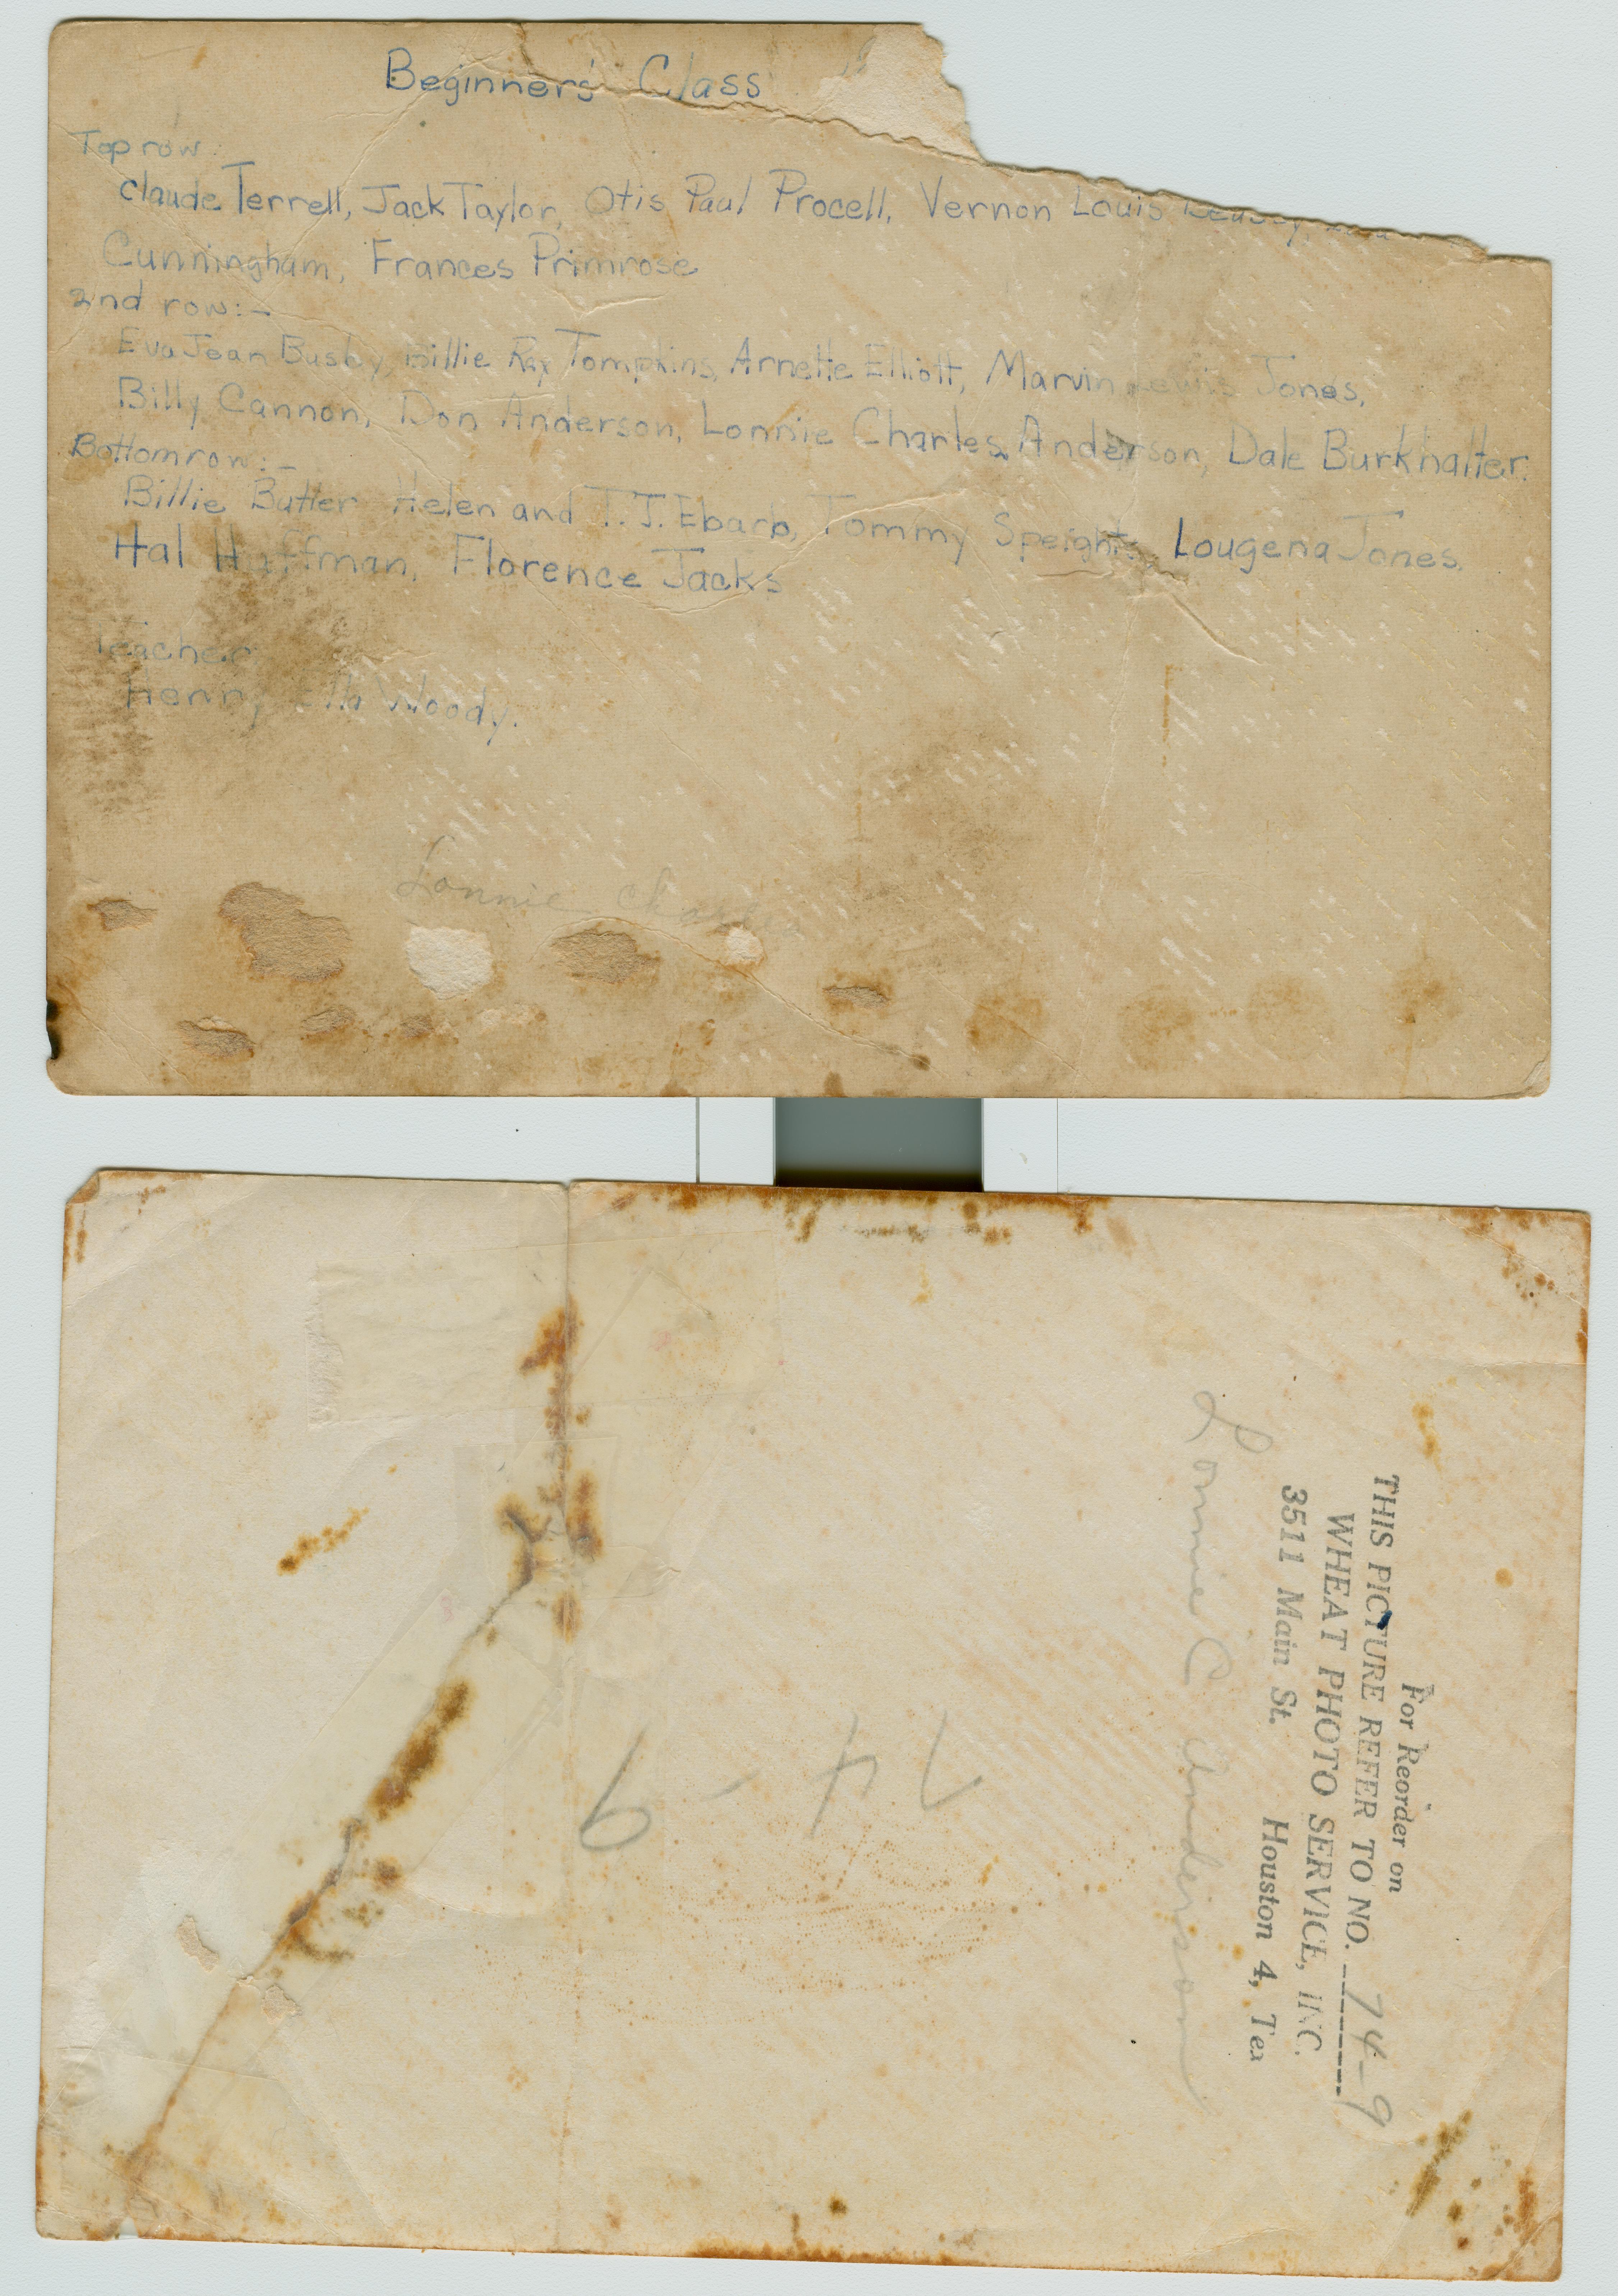 Beginners' Class
Top row:
Claude Terrell, Jack Taylor, Otis Paul Procell, Vernon Louis
Cunningham, Frances Primrose
2nd row:-
Eva Jean Busby, Billie Ray Tompkins, Arnette Elliott, Marvin Lewis Jones,
Billy Cannon, Don Anderson, Lonnie Charles Anderson, Dale Burkhalter.
Bottom row:-
Billie Butler Helen and T.J. Ebarb, Tommy Speight, Lougena Jones.
Hal Huffman, Florence Jacks
Teacher
Henry Woody.
Lonnie Charles
For Reorder on
THIS PICTURE REFER TO NO. 74-9
WHEAT PHOTO SERVICE, INC.
3511 Main St. Houston 4, Tex
Lonnie C Anderson
74-9